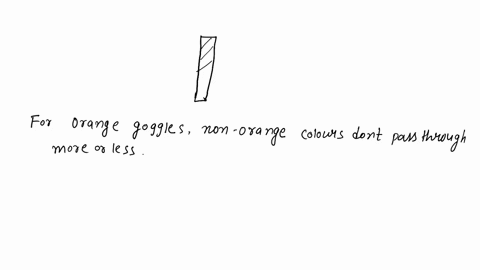 For orange goggles, non-orange colours dont pass through
more or less.